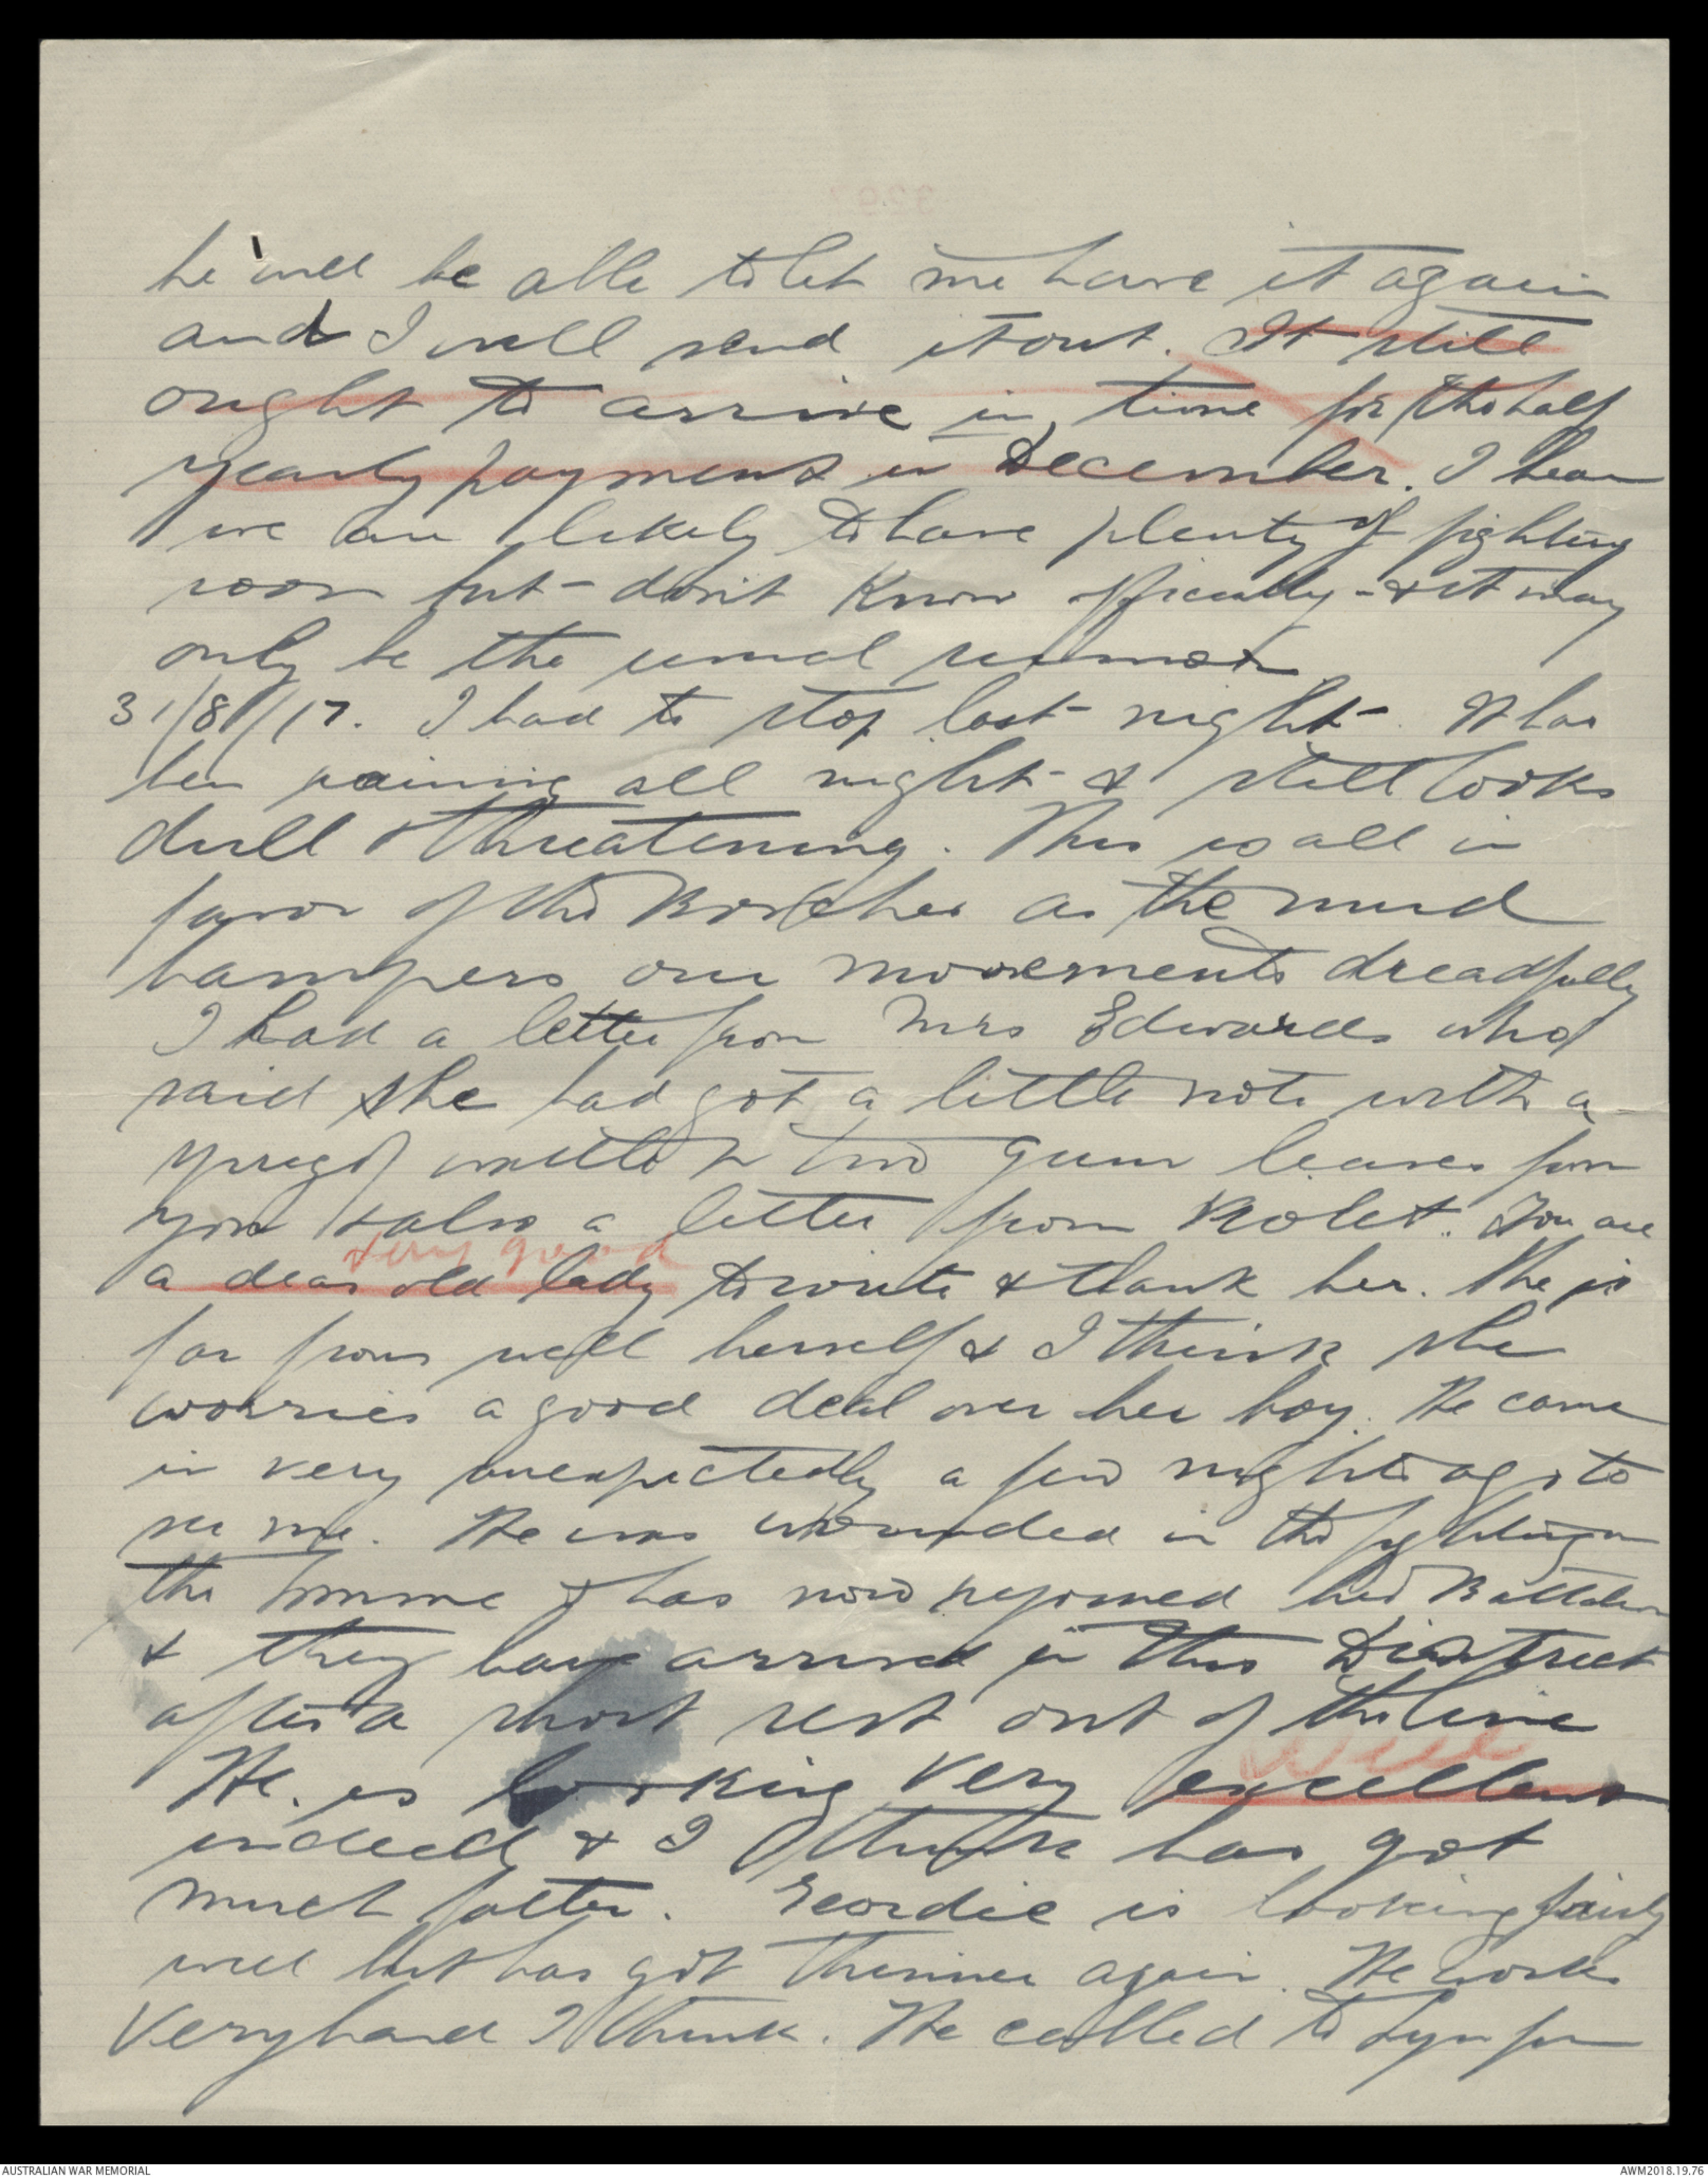 he will be able to let me have it again
and I will send it out. It still
ought to arrive in time for the half
yearly payment in December. I hear
we are likely to have plenty of fighting
soon but don't know officially - & it may
only be the usual rumor
31/8/17. I had to stop last night. It has
been raining all night & still looks
dull & threatening. This is all in
favor of the Bosches as the mud
hampers our movements dreadfully
I had a letter from Mrs Edwards who
said she had got a little note with a
sprig of wattle & two gum leaves from
you & also a letter from Violet. You are
very good
a dear old lady to write & thank her. She is
far from well herself & I think she
worries a good deal over her boy. He came
in very unexpectedly a few nights ago to
see me. He was wounded in the fighting on
the Somme & has now rejoined his Battalion
& they have arrived in this District
after a short rest out of the line
well
He is looking very excellent
indeed & I think has got
much fatter. Geordie is looking fairly
well but has got thinner again. He works
very hard I think. He called to
AUSTRALIAN WAR MEMORIAL
AWM2018.19.76